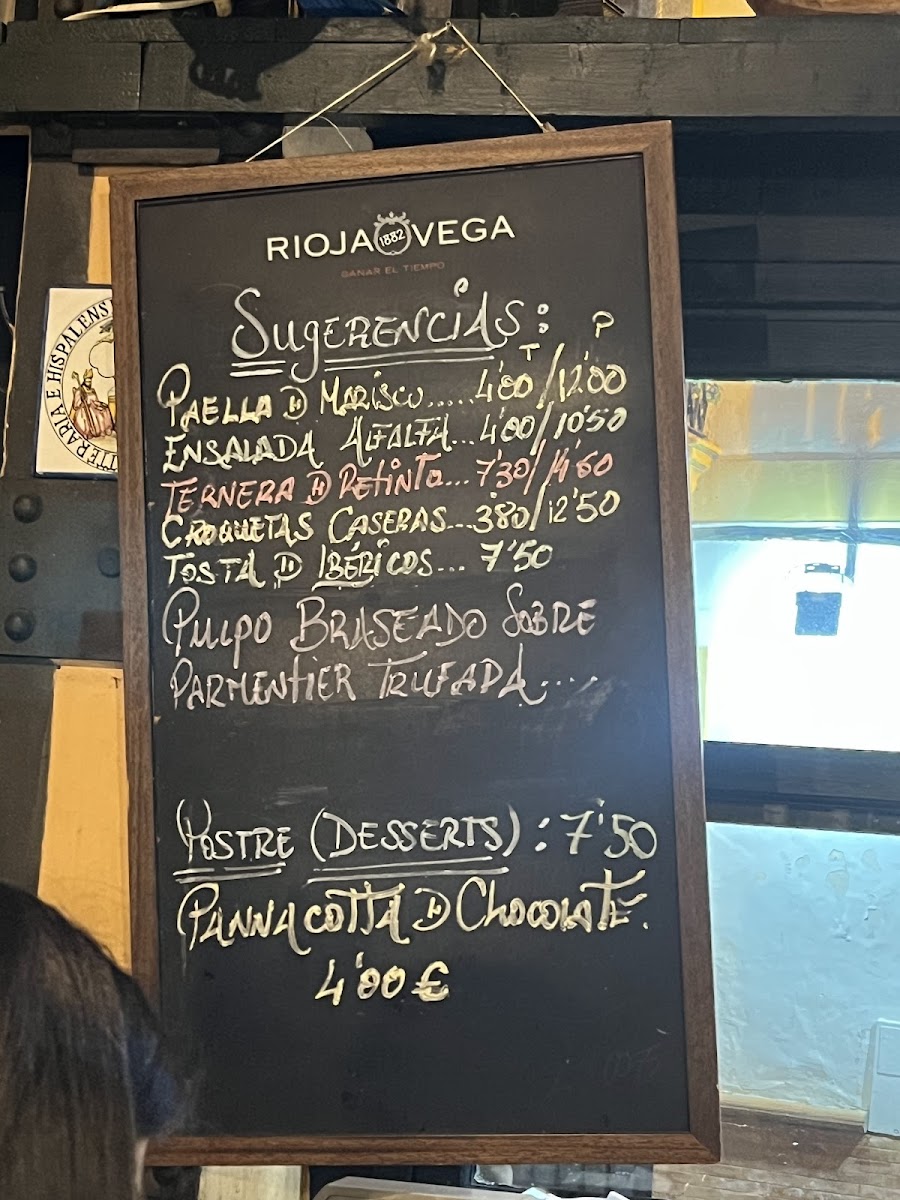 RIOJA 1882 VEGA
GANAR EL TIEMPO
SUGERENCIAS:
T P
PAELLA D MARISCO..... 4'00/12'00
ENSALADA ALFALFA... 4'00/10'50
TERNERA D RETINTO... 7'30/14'60
CROQUETAS CASERAS... 3'80/12'50
TOSTA D IBÉRICOS... 7'50
PULPO BRASEADO SOBRE
PARMENTIER TRUFADA....
POSTRE (DESSERTS) : 7'50
PANNA COTTA D CHOCOLATE.
4'00 €
TTERARIA E HISPALENS